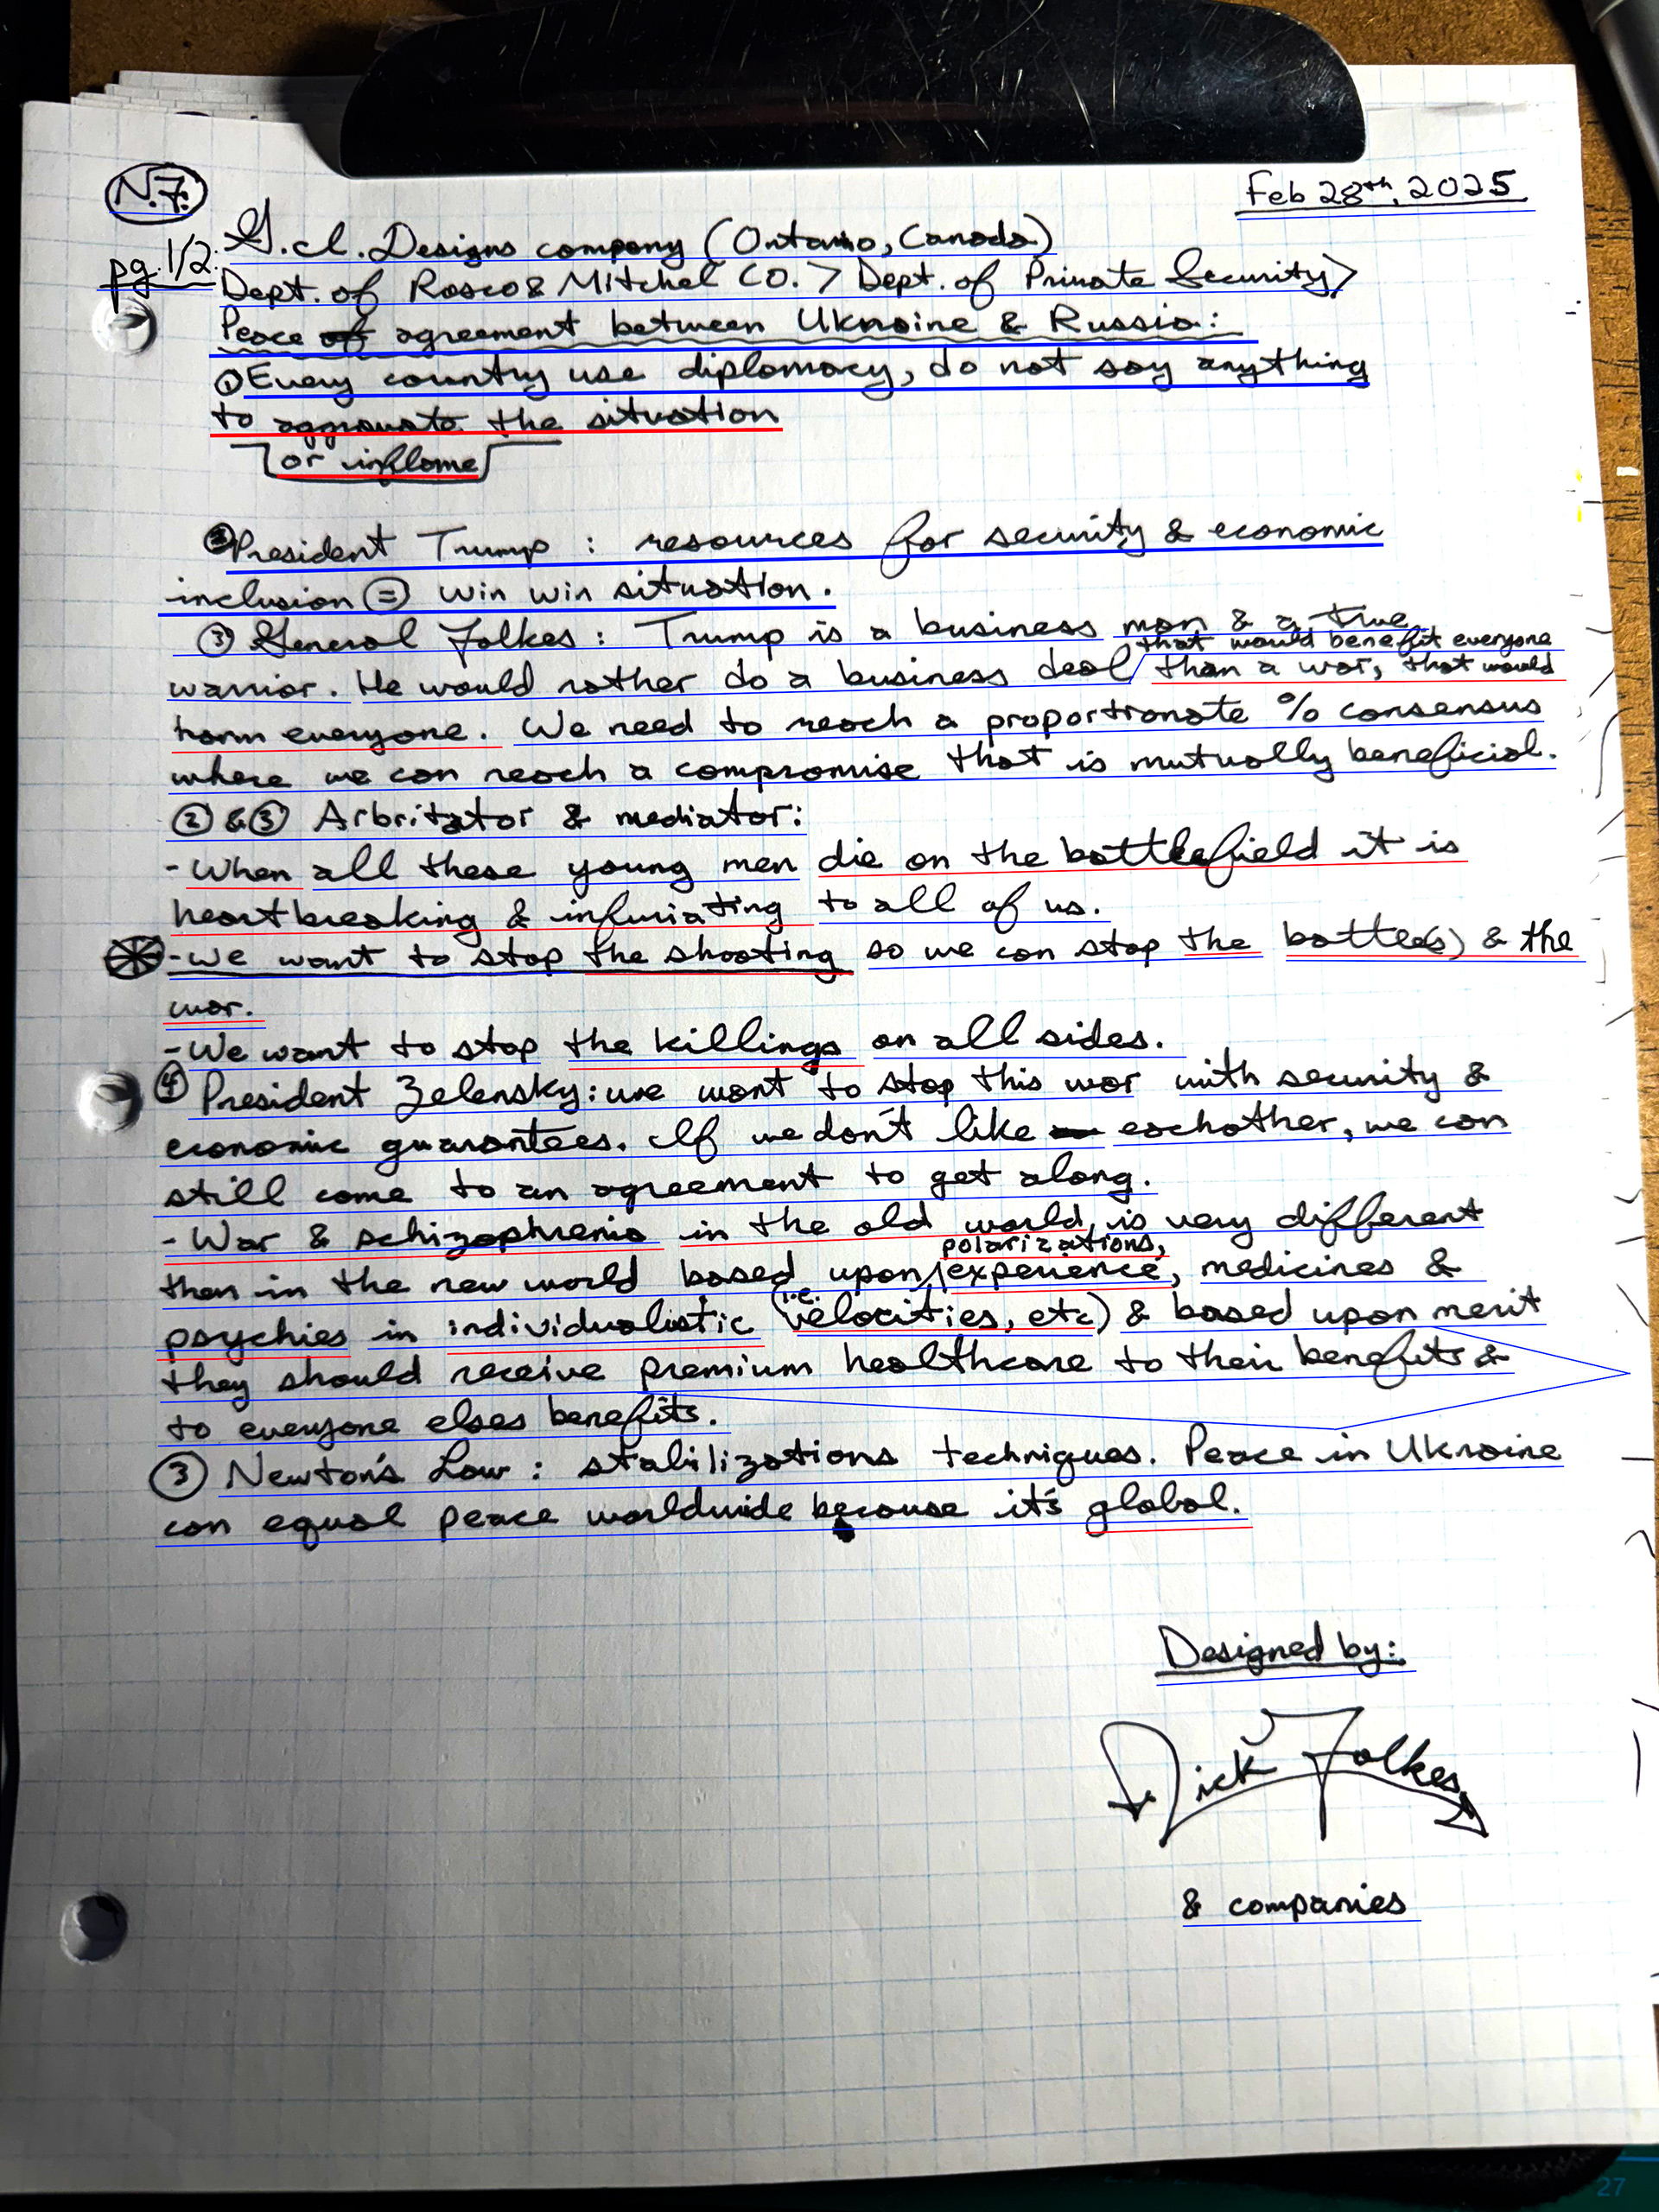 N.7.
Feb 28th, 2025
pg. 1/2:
G.cl. Designs company (Ontario, Canada)
Dept. of Rosco & Mitchel CO. > Dept. of Private Security>
Peace of agreement between Ukraine & Russia:
① Every country use diplomacy, do not say anything
to aggravate the situation
or inflame
② President Trump : resources for security & economic
inclusion = win win situation.
③ General Folkes : Trump is a business man & a true
that would benefit everyone
warrior. He would rather do a business deal / than a war, that would
harm everyone. We need to reach a proportionate % consensus
where we can reach a compromise that is mutually beneficial.
② & ③ Arbritator & mediator:
- When all these young men die on the battlefield it is
heartbreaking & infuriating to all of us.
- We want to stop the shooting so we can stop the battle(s) & the
war.
- We want to stop the killings on all sides.
④ President Zelensky: we want to stop this war with security &
economic guarantees. If we don't like eachother, we can
still come to an agreement to get along.
- War & schizophrenia in the old world, is very different
polarizations,
then in the new world based upon / experience, medicines &
psychies in individualistic (i.e. velocities, etc) & based upon merit
they should receive premium healthcare to their benefits &
to everyone elses benefits.
③ Newton's Law : stabilizations techniques. Peace in Ukraine
can equal peace worldwide because it's global.
Designed by:
Nick Folkes
& companies
27